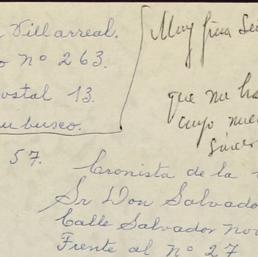 Villarreal.
nº 263.
ostal 13.
57.
Muy fina
que me ha
cuyo
Cronista de la
Sr Don Salvado
Calle Salvador Nov
Frente al nº 27